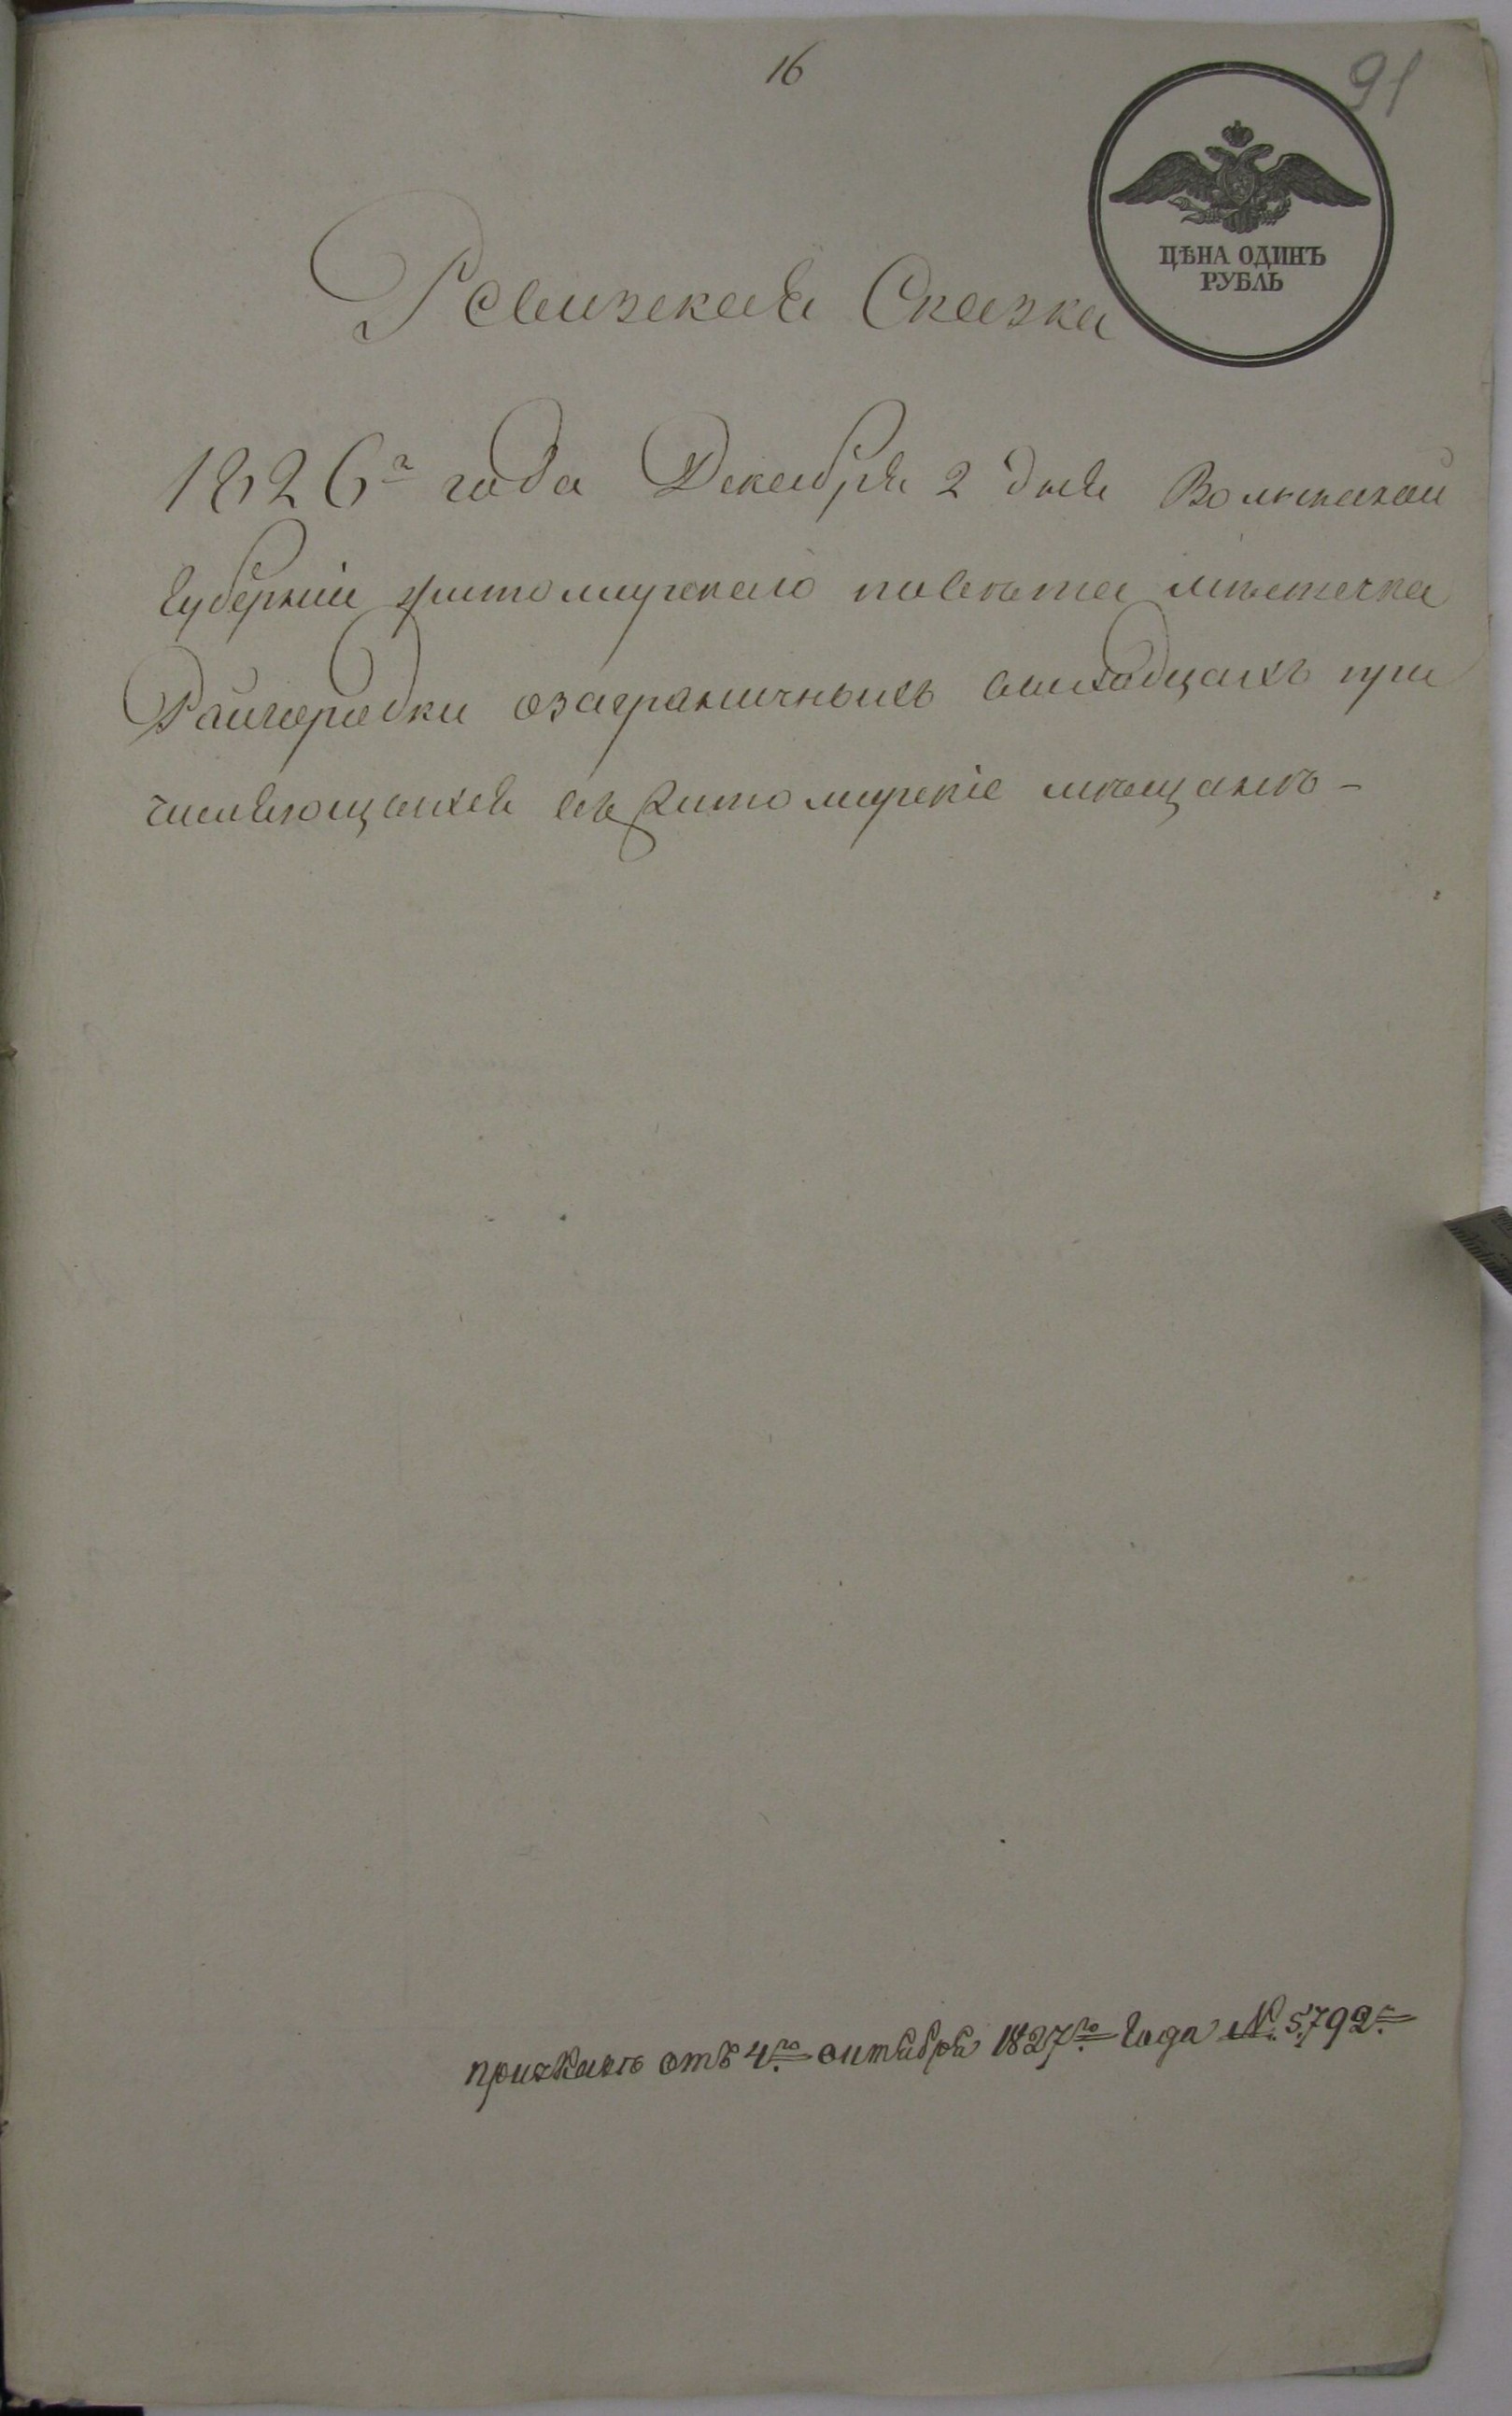 16
91
ЦѢНА ОДИНЪ
РУБЛЬ
Ревизская Сказка
1826го года Декабря 2 дня Волынской
Губерніи Житомирскаго повѣта мѣстечка
Райгородки озаграничныхъ выходцахъ при
числяющихся въ Житомирскіе мѣщане –
при указѣ отъ 4го октября 1827го года № 5,792.